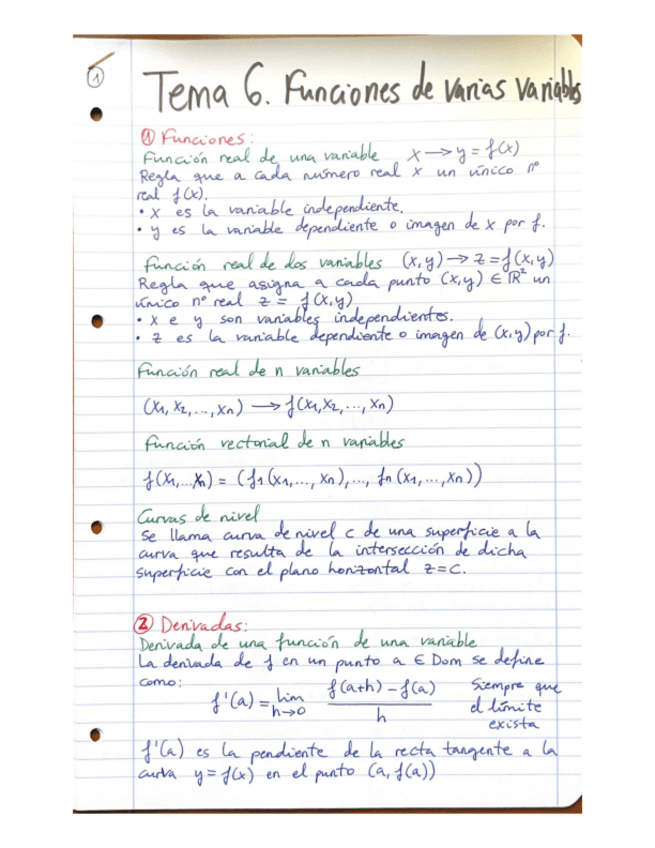 1
Tema 6. Funciones de varias variables
① Funciones:
Función real de una variable x → y = f(x)
Regla que a cada número real x un único nº
real f(x).
• x es la variable independiente.
• y es la variable dependiente o imagen de x por f.
Función real de dos variables (x,y) → z = f(x,y)
Regla que asigna a cada punto (x,y) ∈ ℝ² un
único nº real z = f(x,y)
• x e y son variables independientes.
• z es la variable dependiente o imagen de (x,y) por f.
Función real de n variables
(x₁, x₂, ..., xₙ) → f(x₁, x₂, ..., xₙ)
Función vectorial de n variables
f(x₁,...xₙ) = (f₁(x₁,..., xₙ),..., fₙ(x₁,...,xₙ))
Curvas de nivel
Se llama curva de nivel c de una superficie a la
curva que resulta de la intersección de dicha
superficie con el plano horizontal z=c.
② Derivadas:
Derivada de una función de una variable
La derivada de f en un punto a ∈ Dom se define
como:
f'(a) = lim h→0 (f(a+h) - f(a)) / h Siempre que
el límite
exista
f'(a) es la pendiente de la recta tangente a la
curva y = f(x) en el punto (a, f(a))